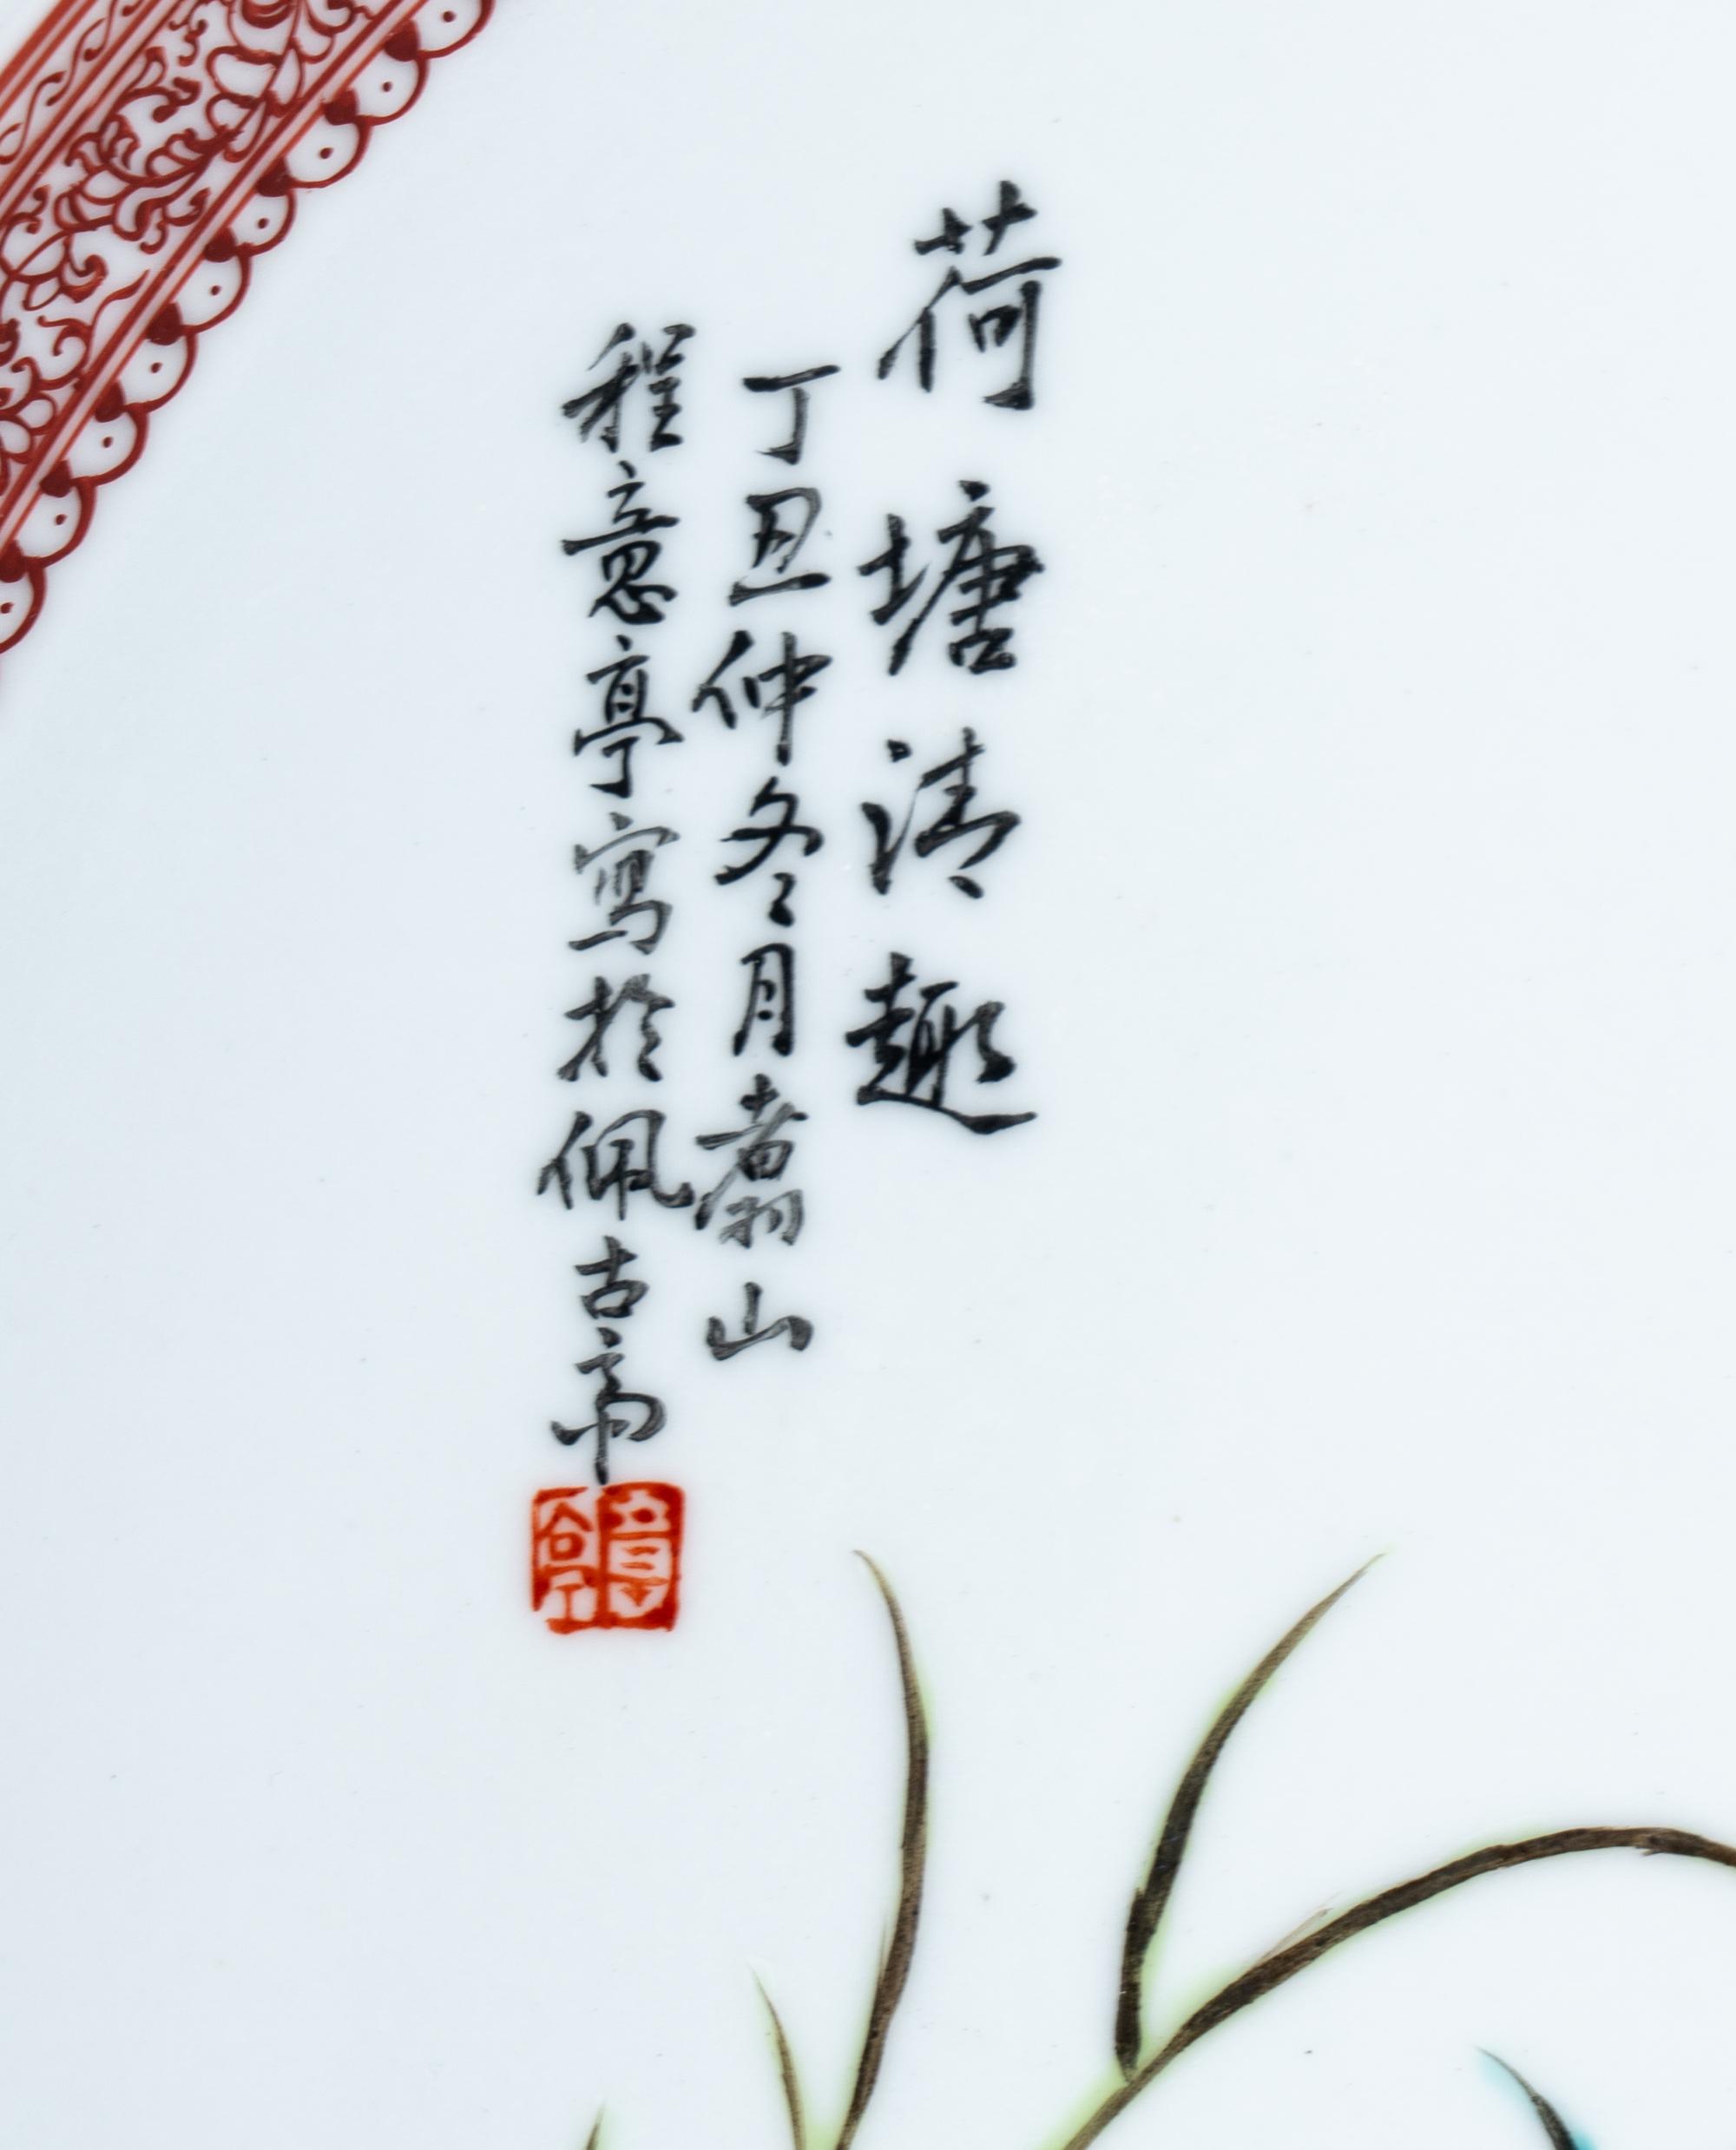 荷塘清趣
丁丑仲冬月翥山
程意亭寫於佩古斋
意亭